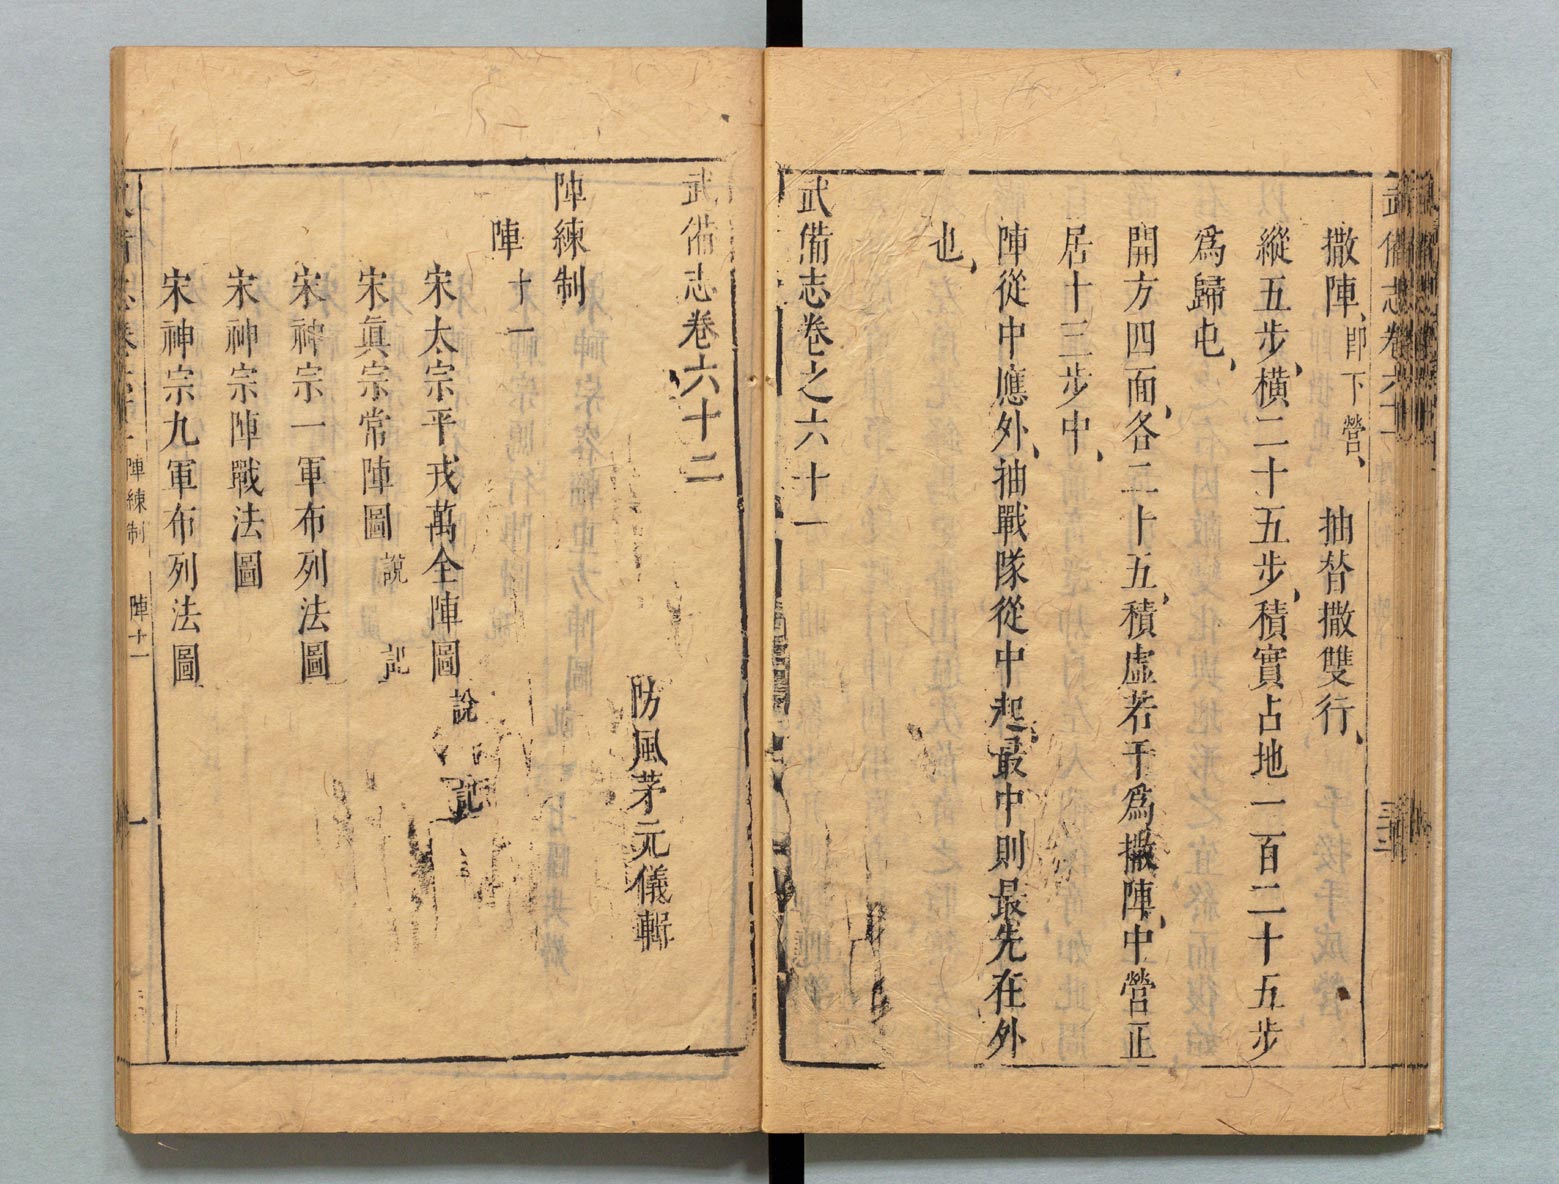 撒陣、卽下營、　抽答撒雙行、
縱五步、橫二十五步、積實占地一百二十五步
爲歸屯、
開方四面、各二十五、積虛若干爲撒陣、中營正
居十三步中、
陣從中應外、抽戰隊從中起、最中則最先在外
也、
武備志卷之六十一
武備志卷六十二
防風茅元儀輯
陣練制
陣十一
宋太宗平戎萬全陣圖 說 記
宋眞宗常陣圖 說 記
宋神宗一軍布列法圖
宋神宗陣戰法圖
宋神宗九軍布列法圖
陣練制　陣十一　一